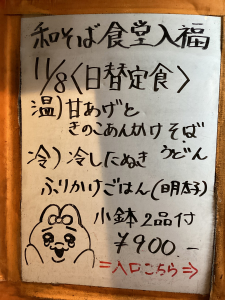 和そば食堂入福
11/8〈日替定食〉
温)甘あげと
きのこあんかけそば
うどん
冷)冷したぬき
ふりかけごはん(明太子)
小鉢2品付
¥900-
⇒入口こちら⇒